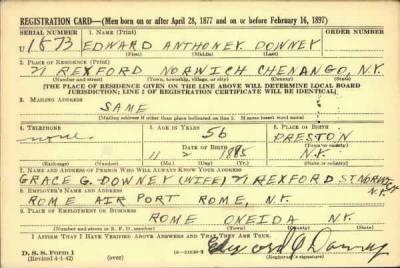 REGISTRATION CARD—(Men born on or after April 28, 1877 and on or before February 16, 1897)
SERIAL NUMBER 1. NAME (Print) ORDER NUMBER
U 1573 EDWARD ANTHONEY DOWNEY
(First) (Middle) (Last)
2. PLACE OF RESIDENCE (Print)
21 REXFORD NORWICH CHENANGO, N.Y.
(Number and street) (Town, township, village, or city) (County) (State)
[THE PLACE OF RESIDENCE GIVEN ON THE LINE ABOVE WILL DETERMINE LOCAL BOARD
JURISDICTION; LINE 2 OF REGISTRATION CERTIFICATE WILL BE IDENTICAL]
3. MAILING ADDRESS
SAME
[Mailing address if other than place indicated on line 2. If same insert word same]
4. TELEPHONE 5. AGE IN YEARS 6. PLACE OF BIRTH
none 56 PRESTON
DATE OF BIRTH (Town or county)
11 2 1885 N.Y.
(Exchange) (Number) (Mo.) (Day) (Yr.) (State or country)
7. NAME AND ADDRESS OF PERSON WHO WILL ALWAYS KNOW YOUR ADDRESS
GRACE G. DOWNEY (WIFE) 21 REXFORD ST. NORWICH N.Y.
8. EMPLOYER'S NAME AND ADDRESS
ROME AIR PORT ROME, N.Y.
9. PLACE OF EMPLOYMENT OR BUSINESS
ROME ONEIDA N.Y.
(Number and street or R. F. D. number) (Town) (County) (State)
I AFFIRM THAT I HAVE VERIFIED ABOVE ANSWERS AND THAT THEY ARE TRUE.
D. S. S. Form 1
(Revised 4-1-42) (over)